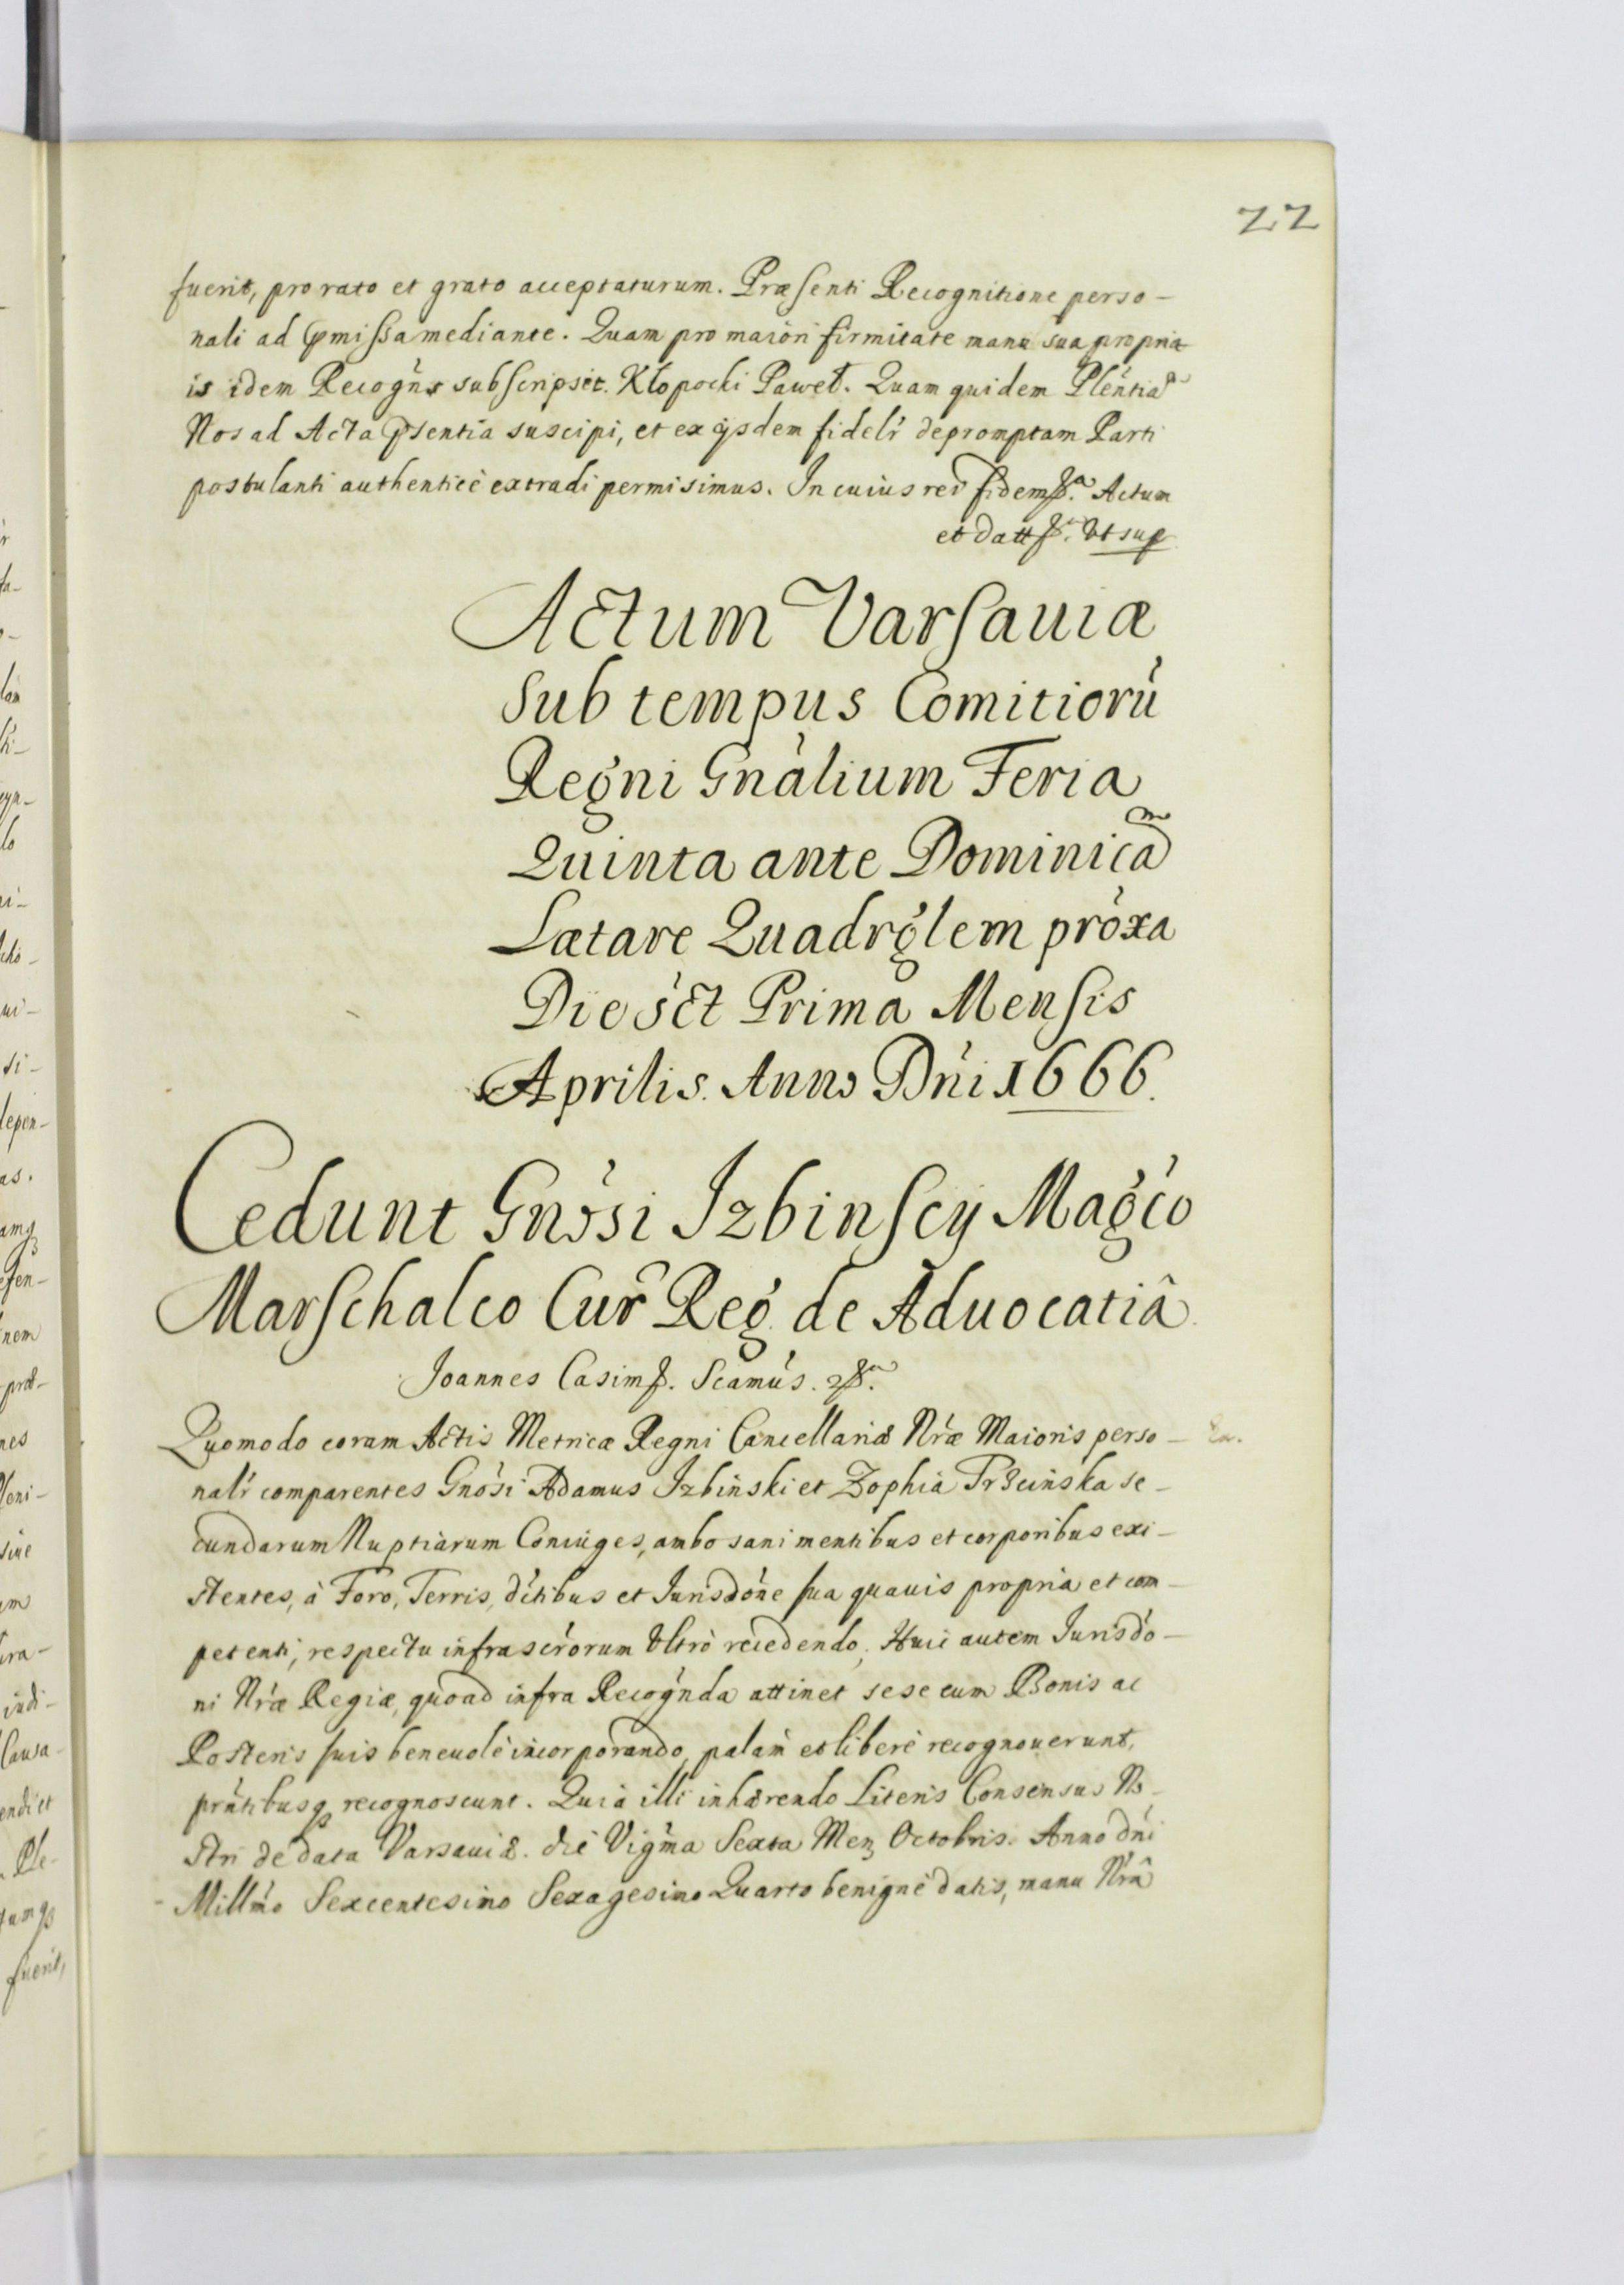 22
fuerit, pro rato et grato acceptaturum. Præsenti Recognitione perso-
nali ad pmissa mediante. Quam pro maiori firmitate manu sua propria
is idem Recogńs subscripsit. Kłopocki Paweł. Quam quidem Pleńtiam
Nos ad Acta psentia suscipi, et ex ijsdem fideli depromptam Parti
postulanti authenticè extradi permisimus. In cuius rei fidem &a. Actum
et datt &a. Vt sup
Actum Varsauiæ
sub tempus Comitiorù
Regni Gnàlium Feria
Quinta ante Dominicam
Lætare Quadrg̀lem pròxa
Die śct Prima Mensis
Aprilis. Anno Dńi 1666.
Cedunt Gnòsi Izbinscy Magćo
Marschalco Cur̃ Reg. de Aduocatiâ
Joannes Casim&. Scamús. &a.
Quomodo coram Actis Metricæ Regni Cancellariæ Nŕæ Maioris perso-
nalŕ comparentes Gnósi Adamus Izbiński et Zophia Trzcińska se-
cundarum Nuptiarum Coniuges, ambo sani mentibus et corporibus exi-
stentes, à Foro, Terris, dítibus et Iurisdóne sua quauis propria et com-
petenti, respectu infrascŕorum Vltrò recedendo, Huic autem Iurisdó-
ni Nŕæ Regiæ, quoad infra Recogńda attinet sese cum Bonis ac
Posteris suis beneuolè incorporando, palàm et liberè recognouerunt,
pŕntibusq recognoscunt. Quia illi inhærendo Literis Consensus No-
stri de data Varsauiæ. die Vigm̃a Sexta Menz Octobris. Anno dńi
Millḿo Sexcentesimo Sexagesimo Quarto benignè datis, manu Nr̃â